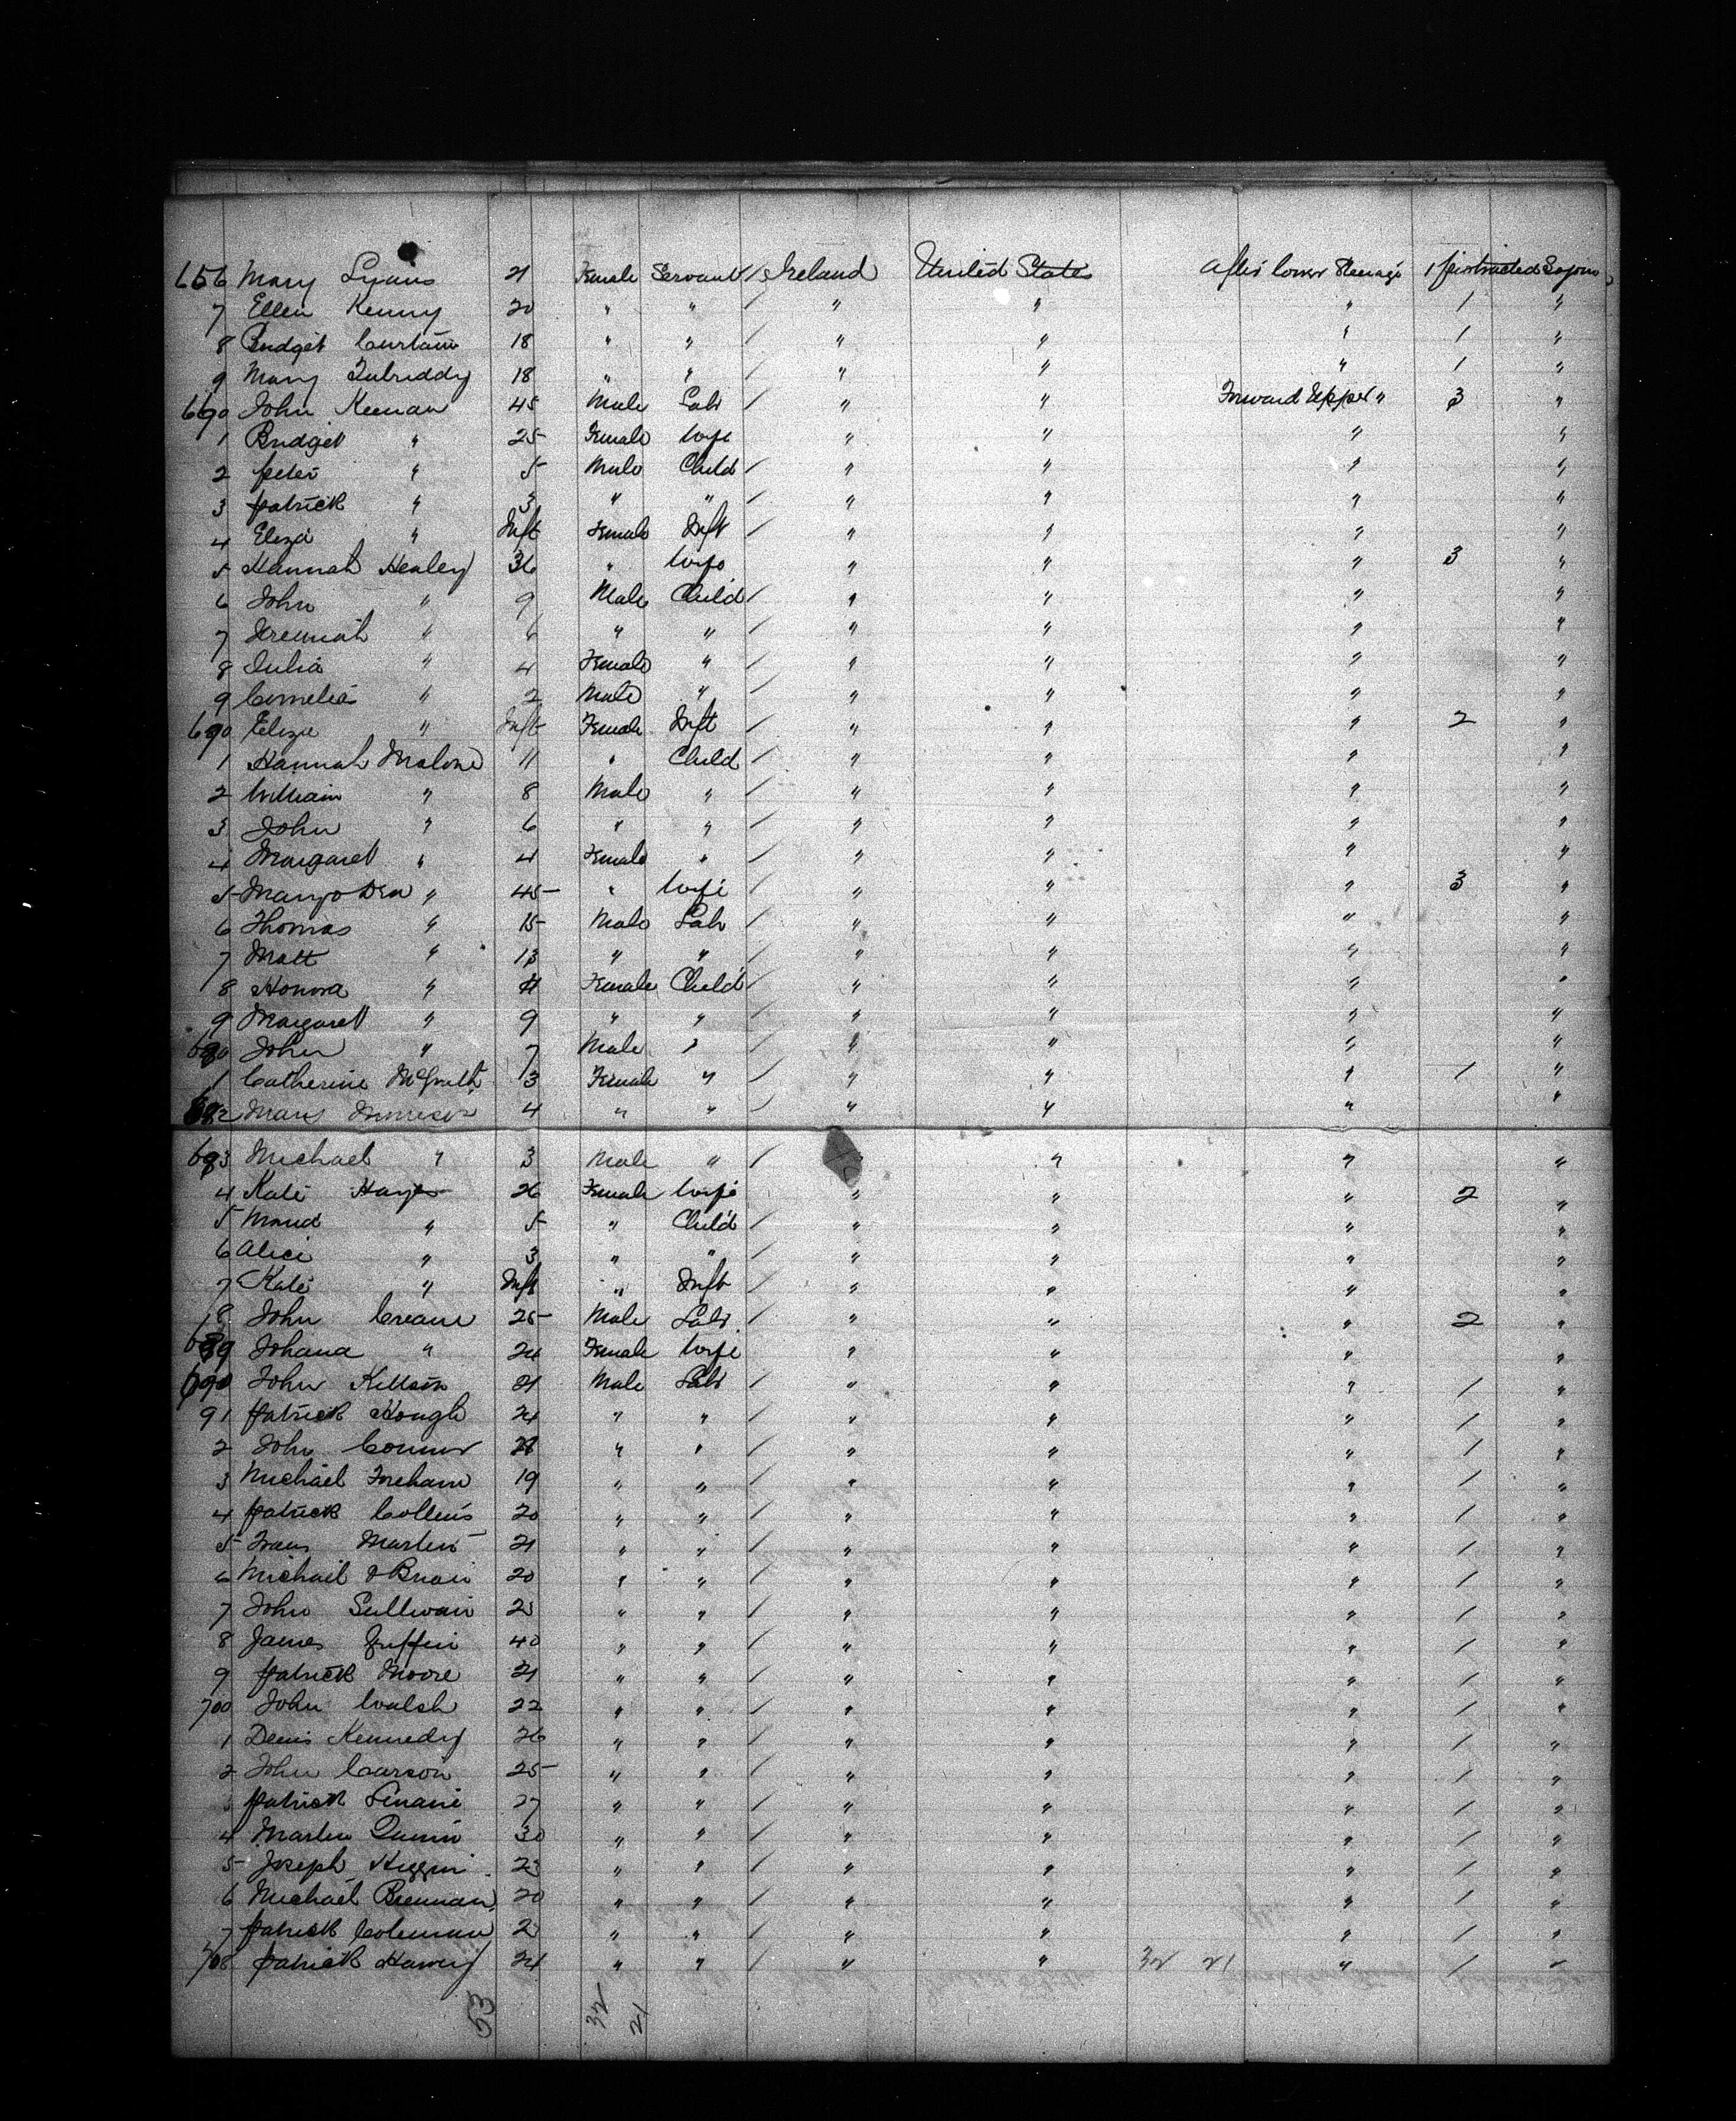 656 Mary Lyons 21 Female Servant / Ireland United States After lower Steerage 1 protracted Sojourn
7 Ellen Kenny 20 " " / " " " 1 "
8 Bridget Curtain 18 " " / " " " 1 "
9 Mary Tubriddy 18 " " / " " " 1 "
660 John Keenan 45 Male Labr / " " Forward Upper " 3 "
1 Bridget " 25 Female Wife " " " "
2 Peter " 5 Male Child / " " " "
3 Patrick " 3 " " / " " " "
4 Eliza " Inft Female Inft / " " " "
5 Hannah Healey 36 " Wife " " " 3 "
6 John " 9 Male Child / " " " "
7 Jeremiah " 6 " " / " " " "
8 Julia " 4 Female " / " " " "
9 Cornelius " 2 Male " / " " " "
690 Eliza " Inft Female Inft / " " " 2 "
1 Hannah Malone 11 " Child / " " " "
2 William " 8 Male " / " " " "
3 John " 6 " " / " " " "
4 Margaret " 4 Female " / " " " "
5 " 45 " Wife " " " 3 "
6 Thomas " 15 Male Labr / " " " "
7 Matt " 13 " " / " " " "
8 Honora " 11 Female Child / " " " "
9 Margaret " 9 " " / " " " "
680 John " 7 Male " / " " " "
1 Catherine McGrath 13 Female " / " " " 1 "
682 Mary Morrison 4 " " / " " " "
683 Michael " 3 Male " / " " "
4 Kate Hayes 26 Female Wife " " " 2 "
5 Maud " 5 " Child / " " " "
6 Alice " 3 " " / " " " "
7 Kate " Inft " Inft / " " " "
8 John Creane 25 Male Labr / " " " 2 "
689 Johana " 24 Female Wife " " " "
690 John 21 Male Labr / " " " 1 "
91 Patrick Hough 24 " " / " " " 1 "
2 John Connor " " / " " " 1 "
3 Michael 19 " " / " " " 1 "
4 Patrick Collins 20 " " / " " " 1 "
5 Martin 21 " " / " " " 1 "
6 Michael O Brien 20 " " / " " " 1 "
7 John Sullivan " " / " " " 1 "
8 James Griffin 40 " " / " " " 1 "
9 Patrick Moore 21 " " / " " " 1 "
700 John Walsh 22 " " / " " " 1 "
1 Denis Kennedy 26 " " / " " " 1 "
2 John Carson 25 " " / " " " 1 "
3 Patrick Linane 27 " " / " " " 1 "
4 Martin Quinn 30 " " / " " " 1 "
5 Joseph Higgin 23 " " / " " " 1 "
6 Michael Brennan 20 " " / " " " 1 "
7 Patrick Coleman " " / " " " 1 "
708 Patrick Harvey 24 " " / " " 32 21 " 1 "
53 32 21